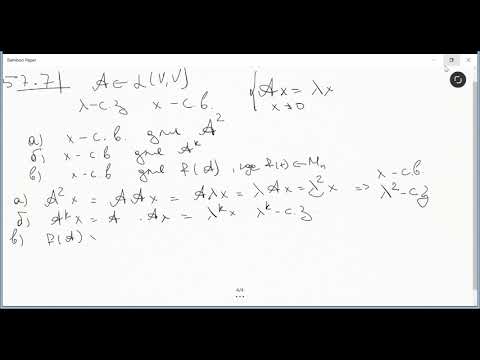 Bamboo Paper
57.71 A ∈ L(V,V) { Ax = λx
λ-с.з x - с.в. x ≠ 0
а) x - с.в. для A²
б) x - с.в для Aᵏ
в) x - с.в для f(A), где f(t) ∈ Mₙ
x - с.в
а) A²x = AAx = Aλx = λAx = λ²x ⇒ λ² - с.з
б) Aᵏx = A . Ax = λᵏx λᵏ - с.з
в) f(A)
4/4